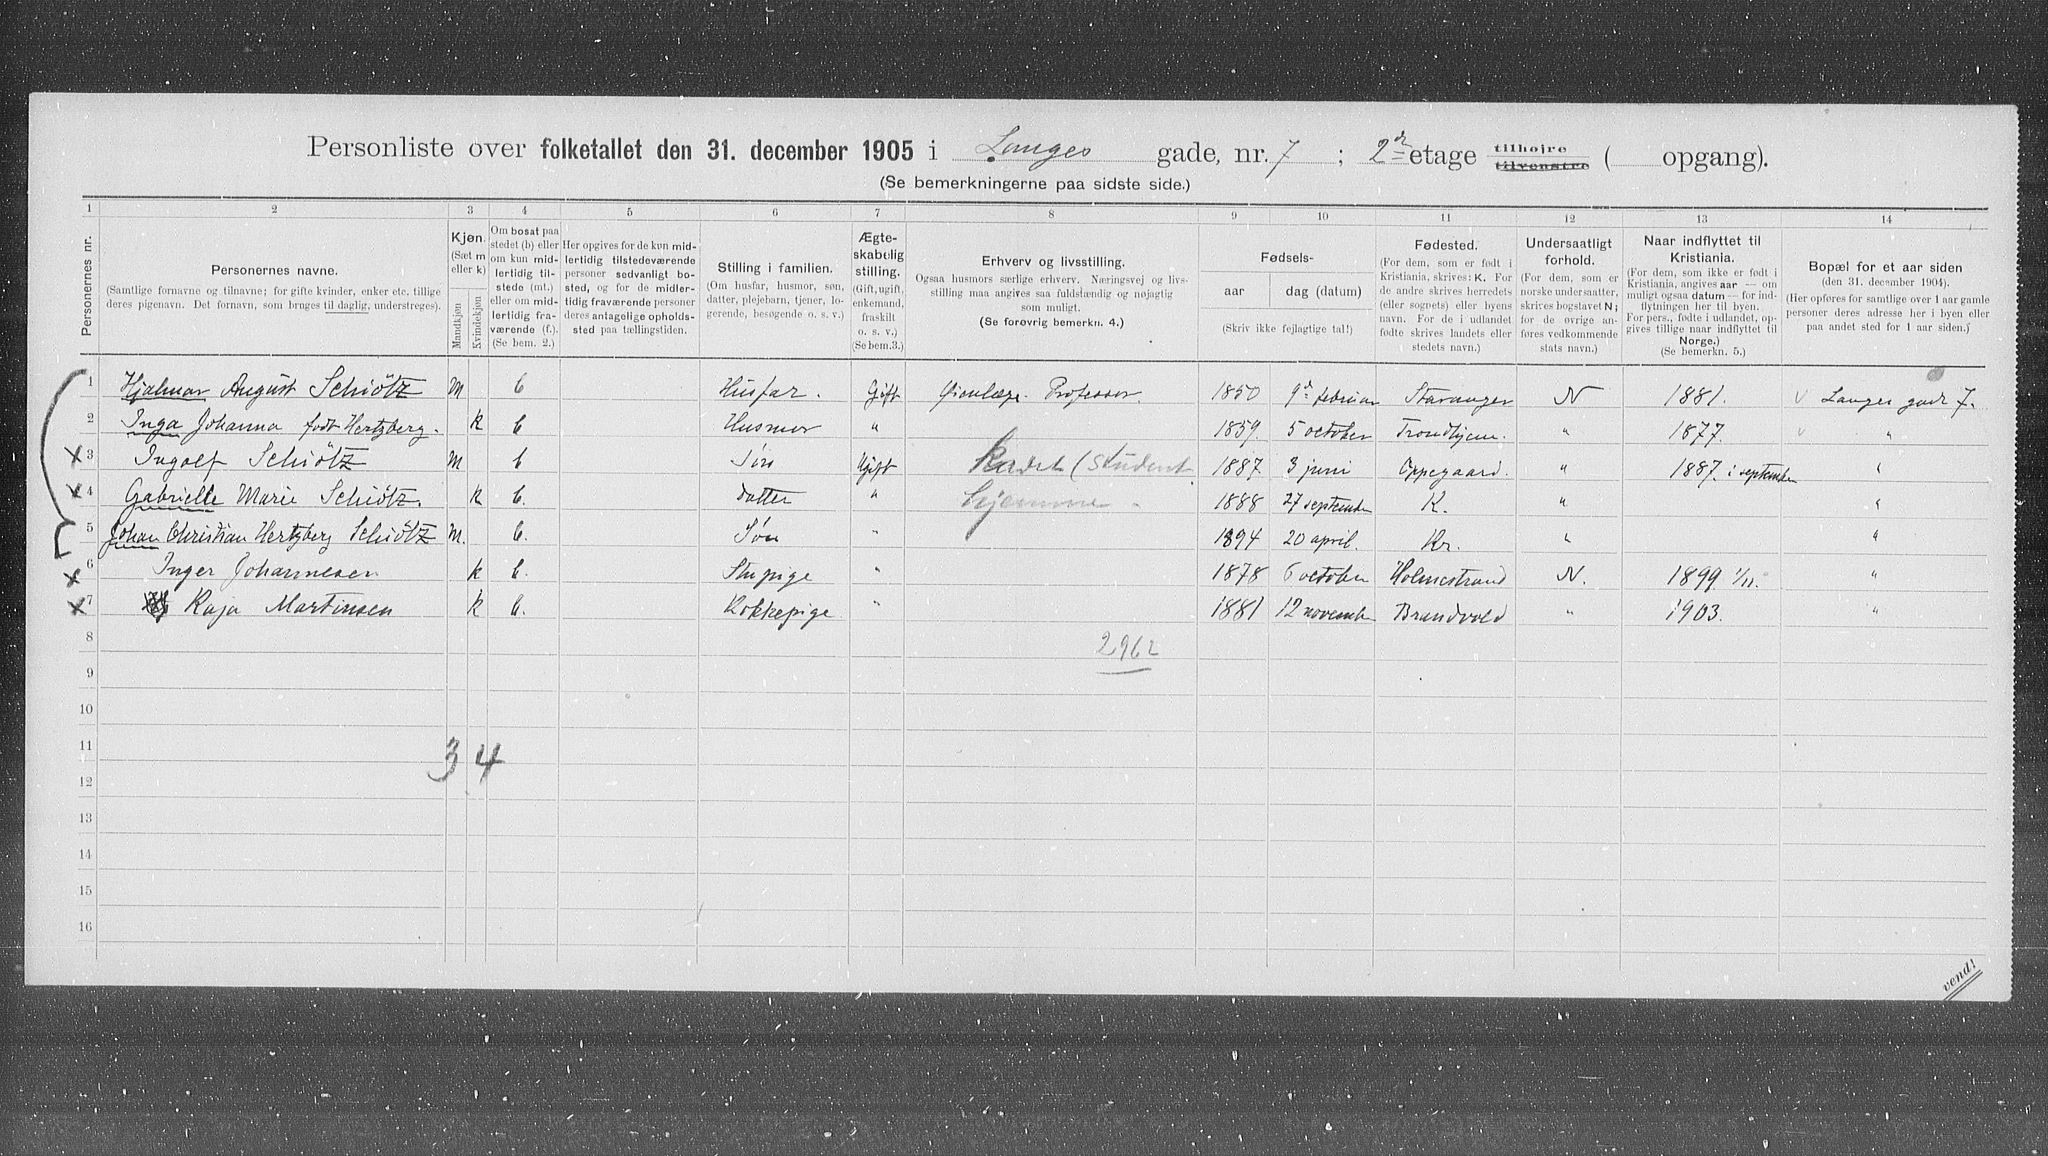 Personliste over folketallet den 31. december 1905 i Langes gade, nr. 7 ; 2den etage tilhøjre tilvenstre ( opgang).
(Se bemerkningerne paa sidste side.)
1 2 3 4 5 6 7 8 9 10 11 12 13 14
Personernes nr.
Personernes navne.
(Samtlige fornavne og tilnavne; for gifte kvinder, enker etc. tillige
deres pigenavn. Det fornavn, som bruges til daglig, understreges).
Kjøn.
(Sæt m
eller k)
Mandkjøn
Kvindekjøn
Om bosat paa
stedet (b) eller
om kun mid-
lertidig til-
stede (mt.)
eller om mid-
lertidig fra-
værende (f.).
(Se bem. 2.)
Her opgives for de kun mid-
lertidig tilstedeværende
personer sedvanligt bo-
sted, og for de midler-
tidig fraværende personer
deres antagelige opholds-
sted paa tællingstiden.
Stilling i familien.
(Om husfar, husmor, søn,
datter, plejebarn, tjener, lo-
gerende, besøgende o. s. v.)
Ægte-
skabelig
stilling.
(Gift, ugift,
enkemand,
fraskilt
o. s. v.)
(Se bem.3.)
Erhverv og livsstilling.
Ogsaa husmors særlige erhverv. Næringsvej og livs-
stilling maa angives saa fuldstændig og nøjagtig
som muligt.
(Se forøvrig bemerkn. 4.)
Fødsels-
aar dag (datum)
(Skriv ikke fejlagtige tal!)
Fødested.
(For dem, som er født i
Kristiania, skrives: K. For
de andre skrives herredets
(eller sognets) eller byens
navn. For de i udlandet
fødte skrives landets eller
stedets navn.)
Undersaatligt
forhold.
(For dem, som er
norske undersaatter,
skrives bogstavet N;
for de øvrige an-
føres vedkommende
stats navn.)
Naar indflyttet til
Kristiania.
(For dem, som ikke er født i
Kristiania, angives aar — om
muligt ogsaa datum — for ind-
flytningen her til byen.
For pers., fødte i udlandet, op-
gives tillige naar indflyttet til
Norge.)
(Se bemerkn. 5.)
Bopæl for et aar siden
(den 31. december 1904).
(Her opføres for samtlige over 1 aar gamle
personer deres adresse her i byen eller
paa andet sted for 1 aar siden.)
1 Hjalmar August Schiötz M b Husfar. Gift Øienlæge. Professor. 1850 9de februar Stavanger N 1881. v Langes gade 7.
2 Inga Johanna født Hertzberg. k b Husmor " 1859. 5 october Trondhjem. " 1877. v "
x 3 Ingolf Schiötz M b Søn Ugift Kadet (student 1887 3 juni Oppegaard. " 1887. i september "
x 4 Gabrielle Marie Schiötz. k b. datter " hjemme. 1888 27 september K. " "
5 Johan Christian Hertzberg Schiötz M. b. Søn " 1894 20 april. Kr. " "
x 6 Inger Johannesen k b. Stupige " 1878 6 october Holmestrand N. 1899 1/11. "
x 7 Kaja Martinsen k b. Kokkepige " 1881 12 november Brandvold " 1903. "
8 2962
9
10
11 3 4
12
13
14
15
16
vend!